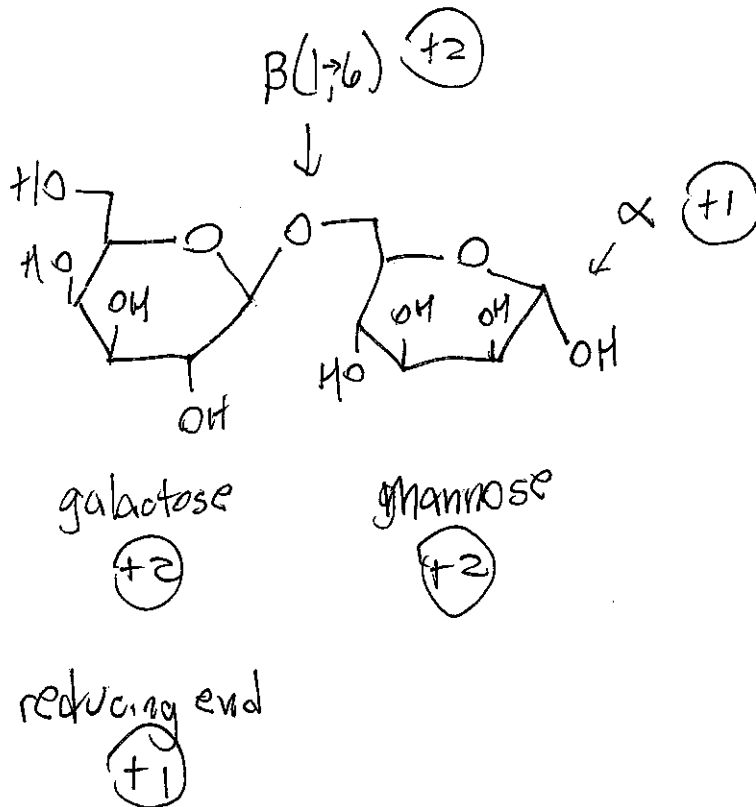 β(1→6) +2
HO O O α +1
HO OH O OH OH
OH HO OH
galactose mannose
+2 +2
reducing end
+1